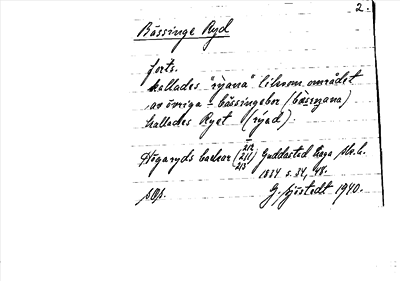 2.
Bässinge Ryd
forts.
kallades "ryana" liksom området
av övriga bässingebor (bässyana)
kallades Ryet (ryad).
Högaryds backar (212 211 213) Guddastad Haga
1884 s. 34, 48.
G. Sjöstedt 1940.